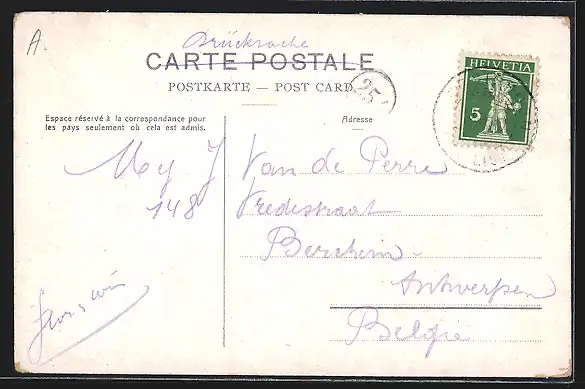 A.
Drücksache
CARTE POSTALE
POSTKARTE — POST CARD
25
HELVETIA
5
Espace réservé à la correspondance pour
les pays seulement où cela est admis.
Adresse
J Van de Perre
148 Vredestraat
Berchem -
Antwerpen
België